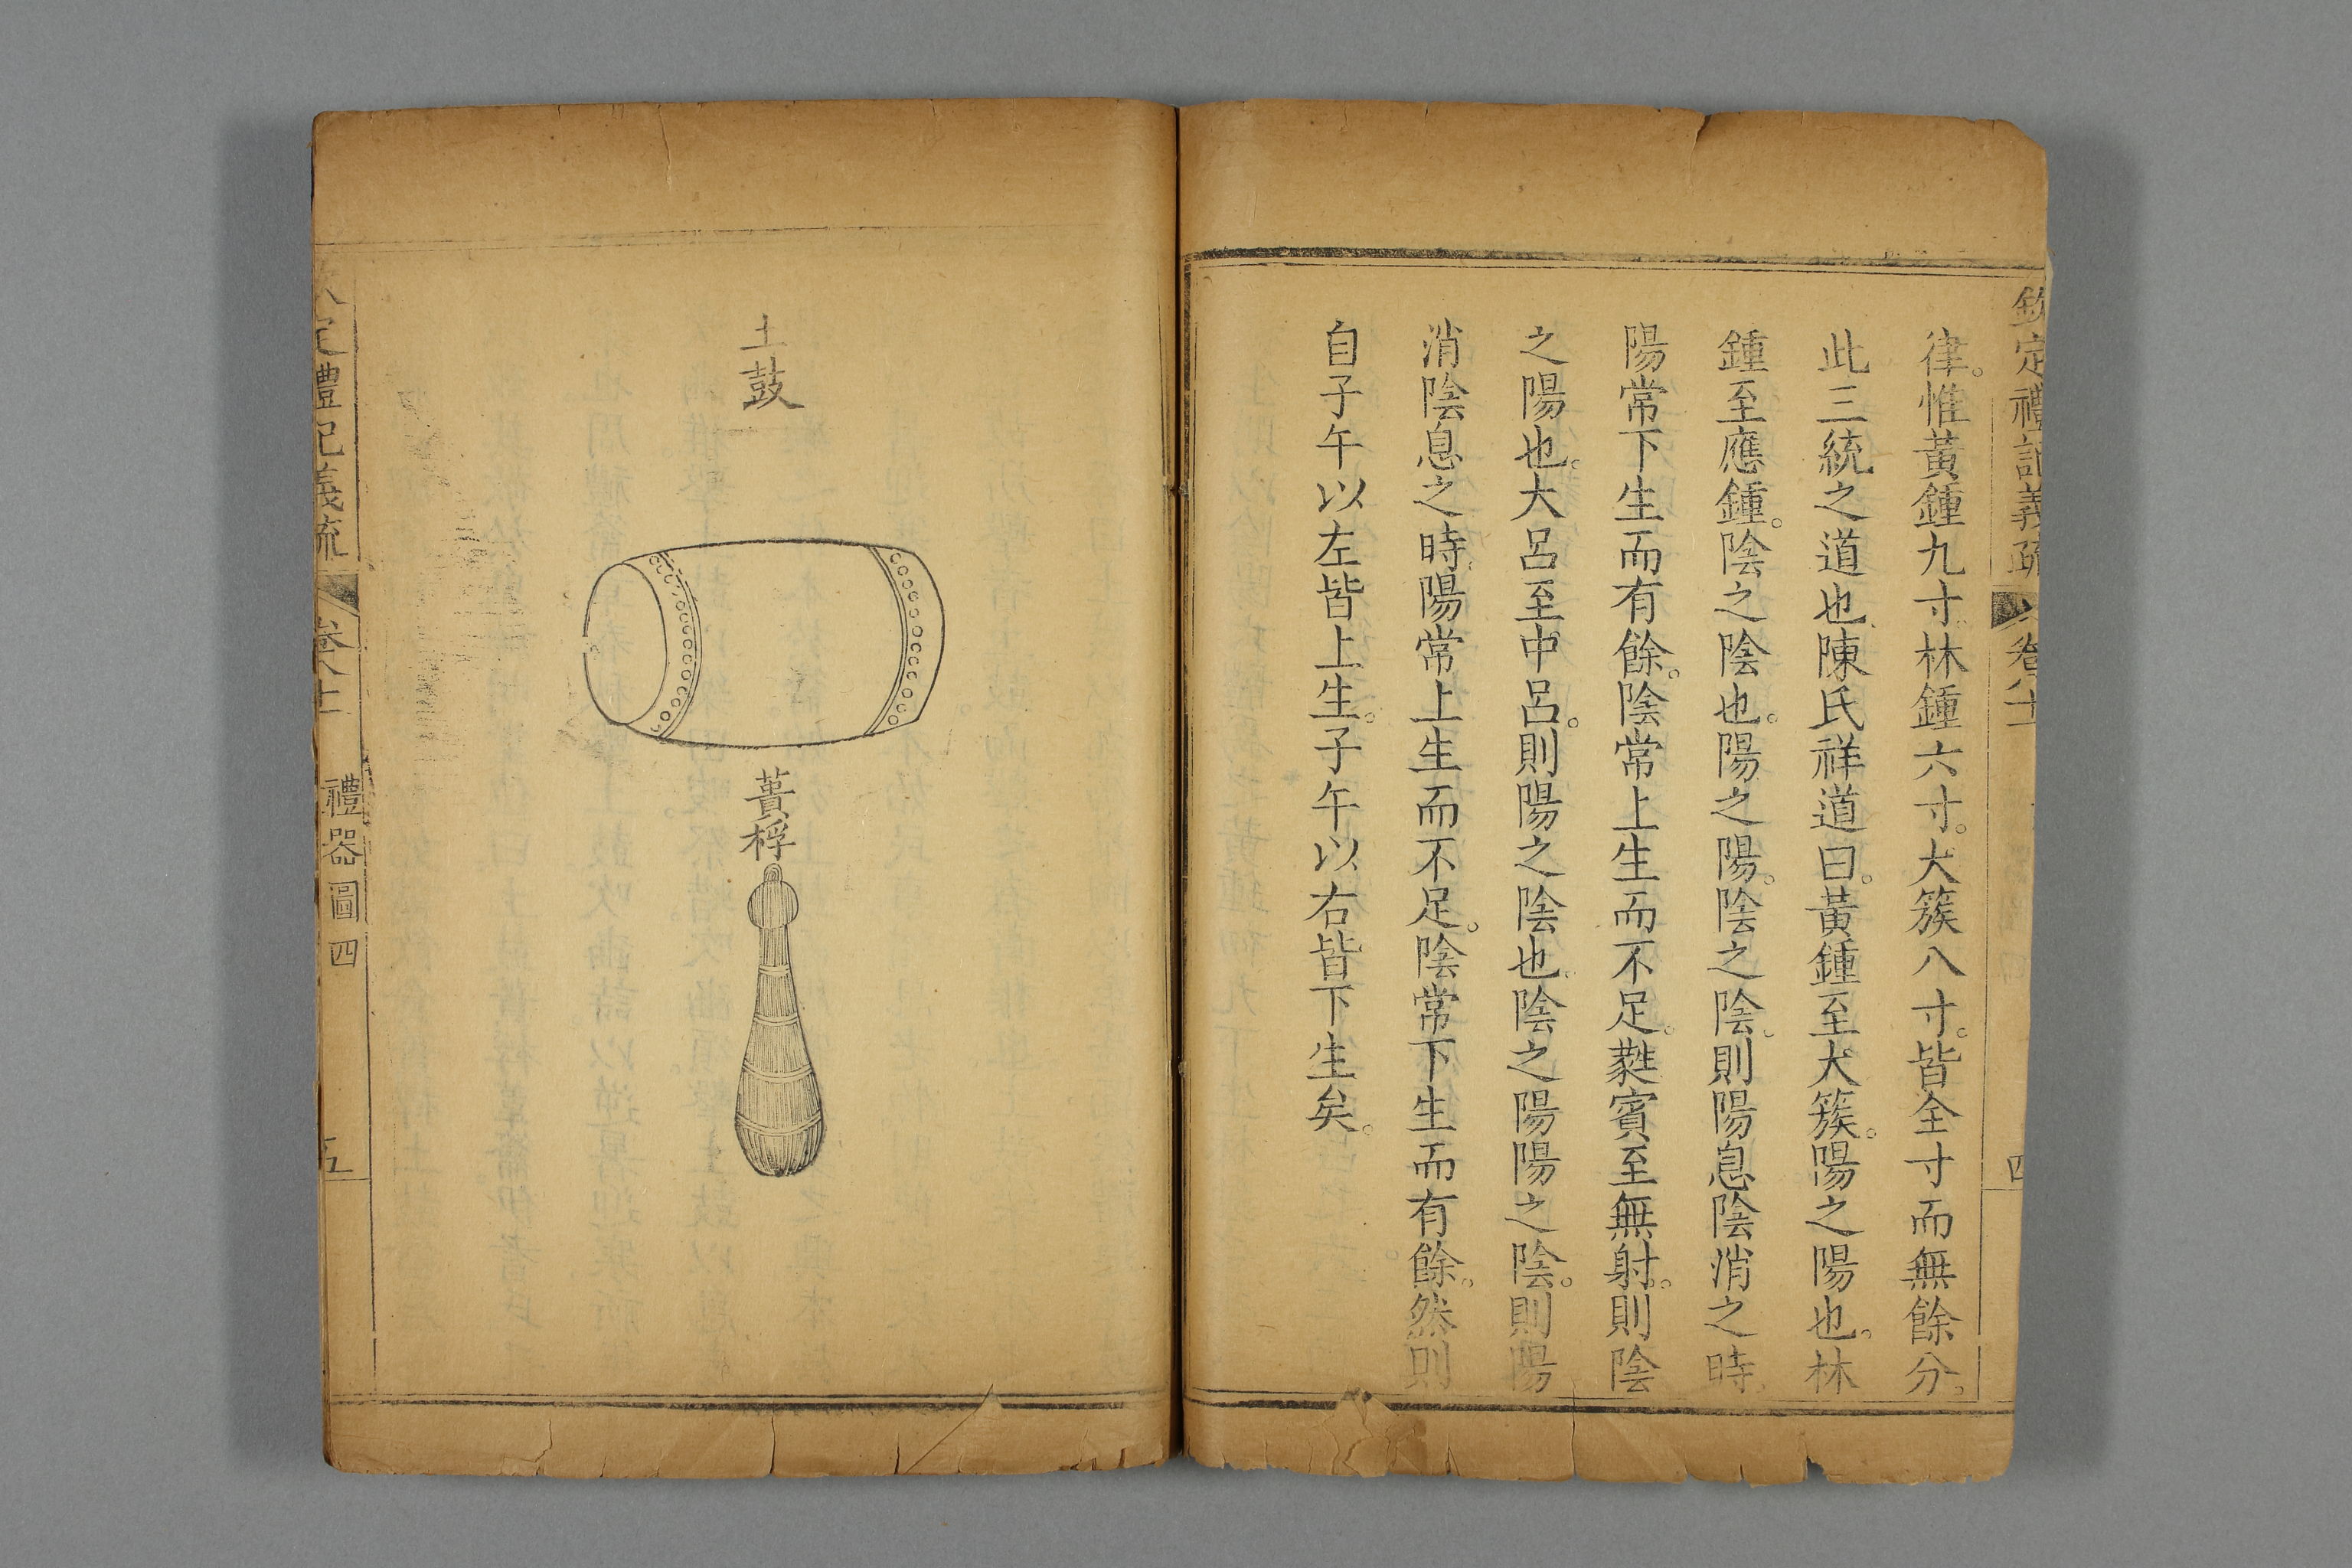 欽定禮記義疏 卷八十一 四
律。惟黃鍾九寸林鍾六寸。大簇八寸。皆全寸而無餘分。
此三統之道也陳氏祥道曰。黃鍾至大簇。陽之陽也。林
鍾至應鍾。陰之陰也。陽之陽。陰之陰。則陽息陰消之時
陽常下生而有餘。陰常上生而不足。蕤賓至無射。則陰
之陽也。大呂至中呂。則陽之陰也。陰之陽陽之陰。則陽
消陰息之時陽常上生而不足。陰常下生而有餘。然則
自子午以左皆上生。子午以右皆下生矣。
土鼓
蕢桴
定禮記義疏 卷八十一 禮器圖四 五